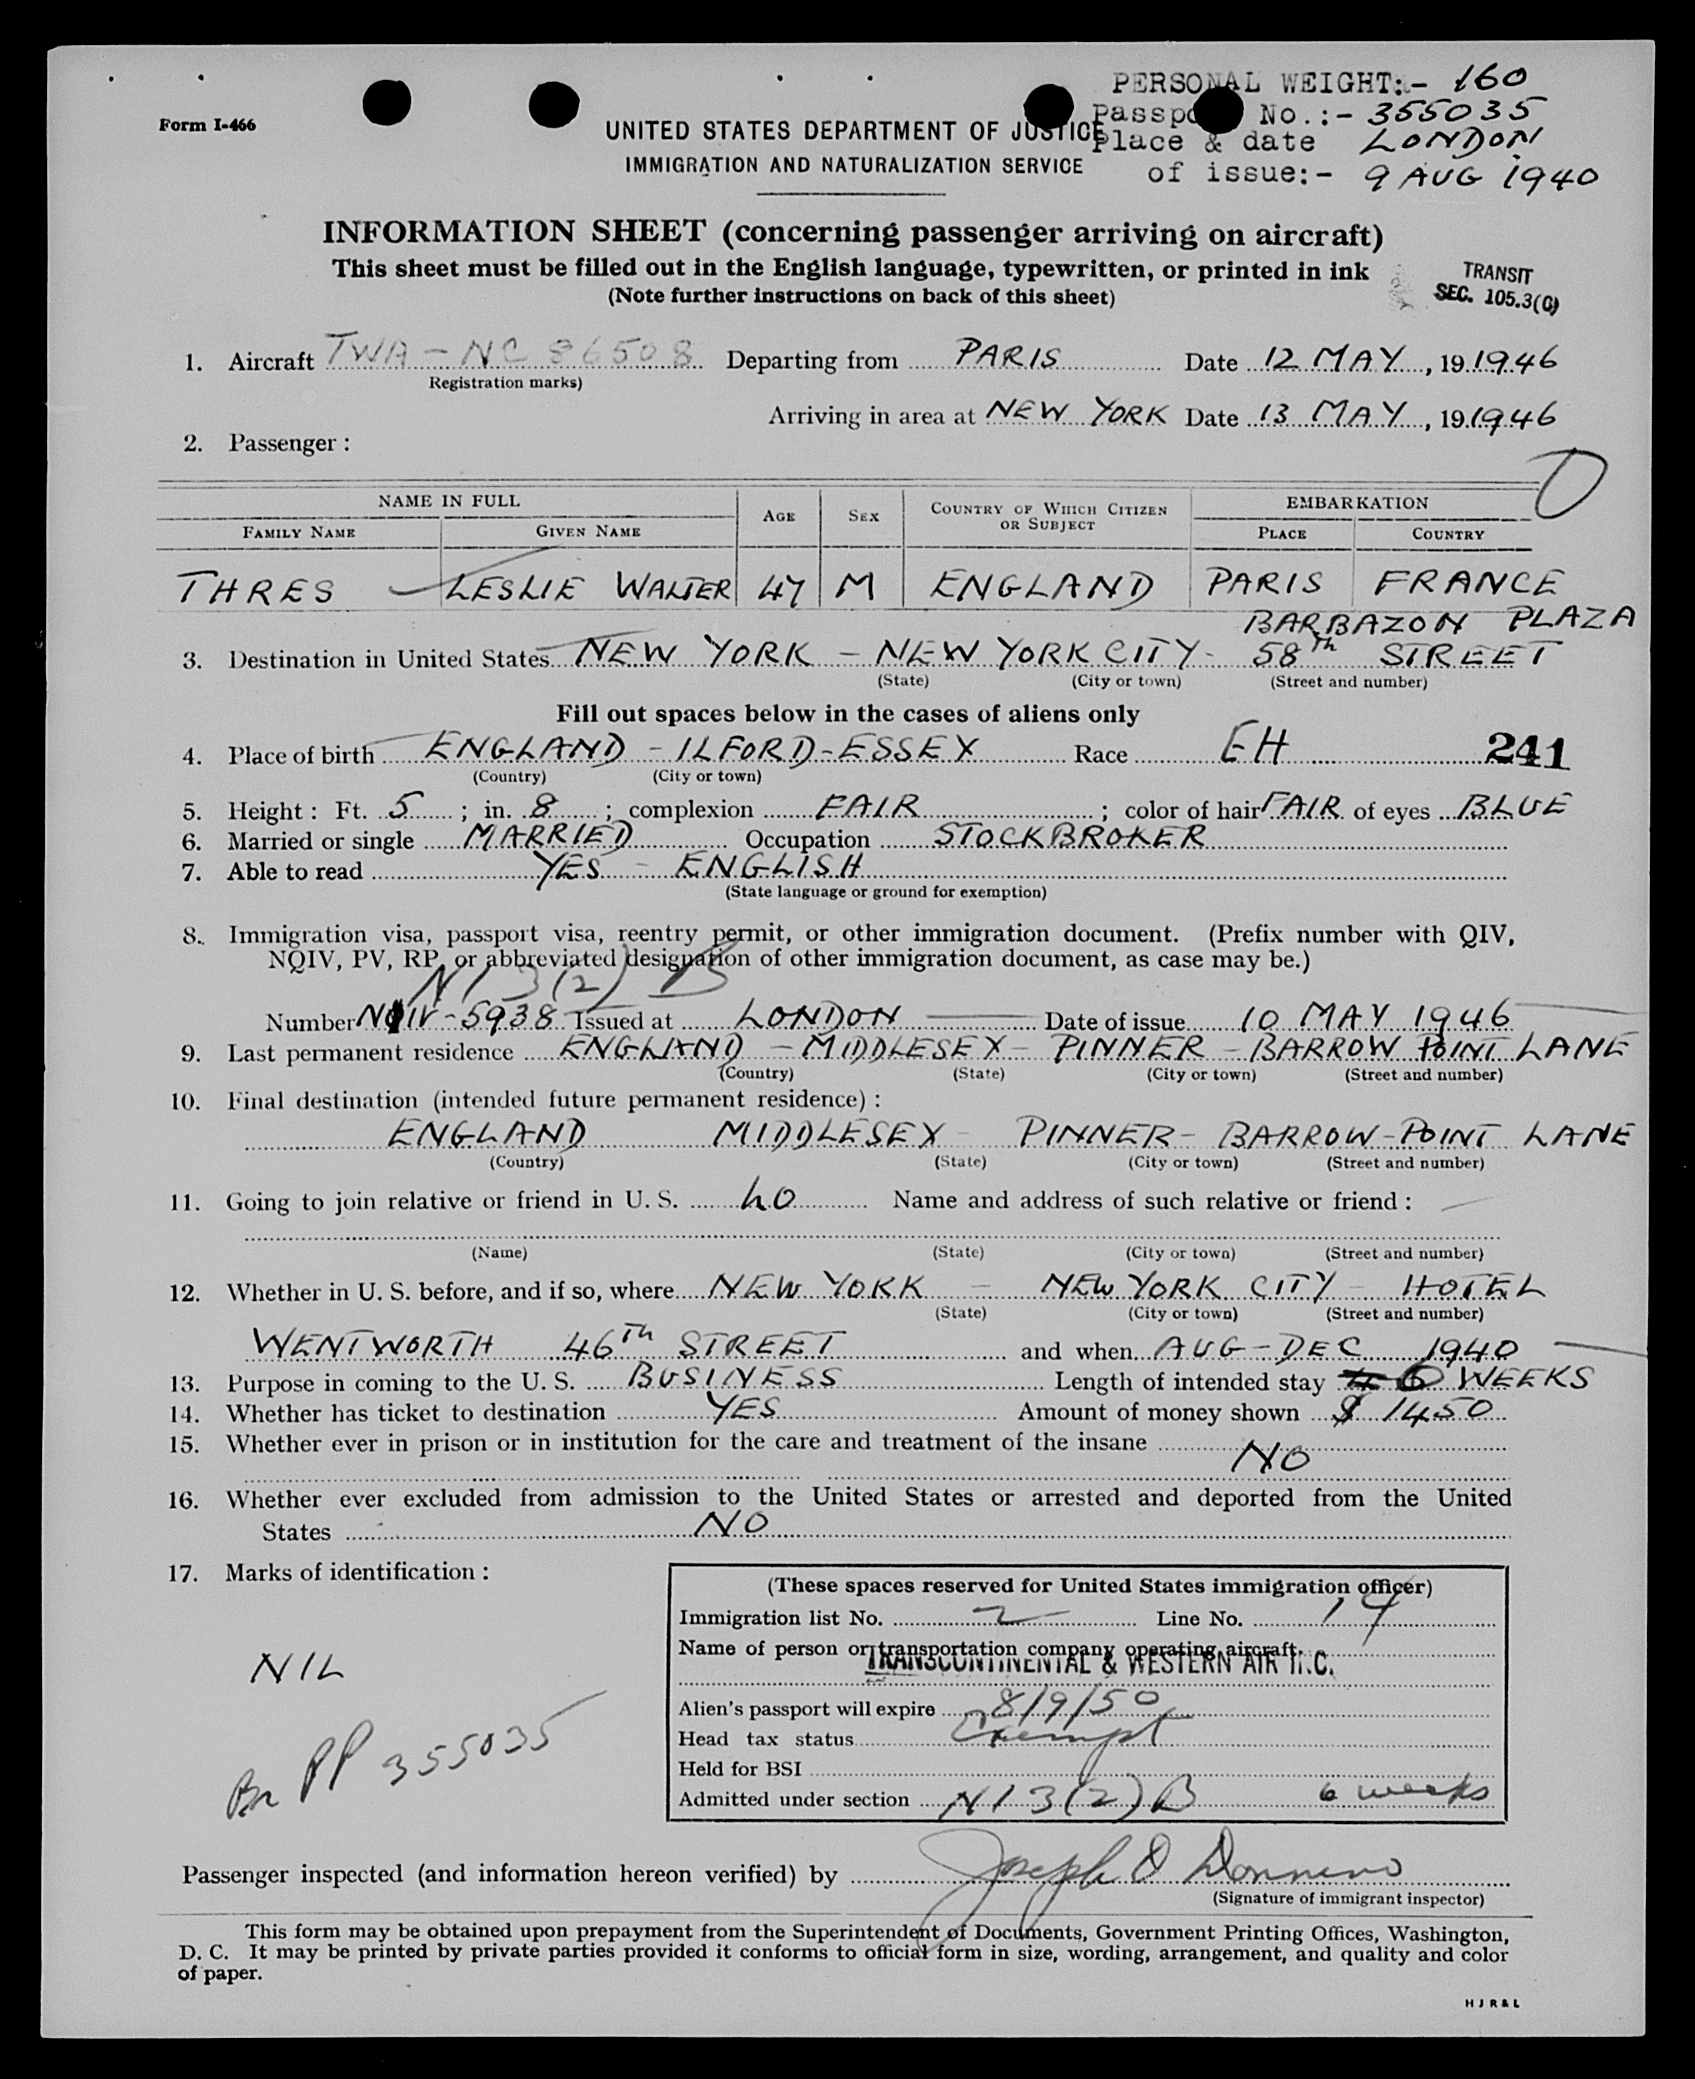 PERSONAL WEIGHT:- 160
Form I-466
Passpo No.:- 355035
UNITED STATES DEPARTMENT OF JUSTICE
Place & date LONDON
IMMIGRATION AND NATURALIZATION SERVICE
of issue:- 9 AUG 1940
INFORMATION SHEET (concerning passenger arriving on aircraft)
This sheet must be filled out in the English language, typewritten, or printed in ink
(Note further instructions on back of this sheet)
TRANSIT
SEC. 105.3(G)
1. Aircraft TWA - NC 86508 Departing from PARIS Date 12 MAY, 19 1946
Registration marks)
Arriving in area at NEW YORK Date 13 MAY, 19 1946
2. Passenger :
NAME IN FULL AGE SEX COUNTRY OF WHICH CITIZEN OR SUBJECT EMBARKATION
FAMILY NAME GIVEN NAME PLACE COUNTRY
THRES LESLIE WALTER 47 M ENGLAND PARIS FRANCE
BARBAZON PLAZA
3. Destination in United States NEW YORK - NEW YORK CITY - 58TH STREET
(State) (City or town) (Street and number)
Fill out spaces below in the cases of aliens only
4. Place of birth ENGLAND - ILFORD - ESSEX Race EH 241
(Country) (City or town)
5. Height : Ft. 5 ; in. 8 ; complexion FAIR ; color of hair FAIR of eyes BLUE
6. Married or single MARRIED Occupation STOCKBROKER
7. Able to read YES - ENGLISH
(State language or ground for exemption)
8. Immigration visa, passport visa, reentry permit, or other immigration document. (Prefix number with QIV,
NQIV, PV, RP, or abbreviated designation of other immigration document, as case may be.)
NI 3(2) B
Number NQIV-5938 Issued at LONDON Date of issue 10 MAY 1946
9. Last permanent residence ENGLAND - MIDDLESEX - PINNER - BARROW POINT LANE
(Country) (State) (City or town) (Street and number)
10. Final destination (intended future permanent residence) :
ENGLAND MIDDLESEX - PINNER - BARROW-POINT LANE
(Country) (State) (City or town) (Street and number)
11. Going to join relative or friend in U. S. no Name and address of such relative or friend :
(Name) (State) (City or town) (Street and number)
12. Whether in U. S. before, and if so, where NEW YORK - NEW YORK CITY - HOTEL
(State) (City or town) (Street and number)
WENTWORTH 46TH STREET and when AUG - DEC 1940
13. Purpose in coming to the U. S. BUSINESS Length of intended stay 6 WEEKS
14. Whether has ticket to destination YES Amount of money shown $ 1450
15. Whether ever in prison or in institution for the care and treatment of the insane NO
16. Whether ever excluded from admission to the United States or arrested and deported from the United
States NO
17. Marks of identification :
NIL
Br PP 355035
(These spaces reserved for United States immigration officer)
Immigration list No. 2 Line No. 14
Name of person or transportation company operating aircraft
TRANSCONTINENTAL & WESTERN AIR INC.
Alien's passport will expire 8/9/50
Head tax status Exempt
Held for BSI
Admitted under section NI 3(2) B 6 weeks
Passenger inspected (and information hereon verified) by Joseph
(Signature of immigrant inspector)
This form may be obtained upon prepayment from the Superintendent of Documents, Government Printing Offices, Washington,
D. C. It may be printed by private parties provided it conforms to official form in size, wording, arrangement, and quality and color
of paper.
H J R & L